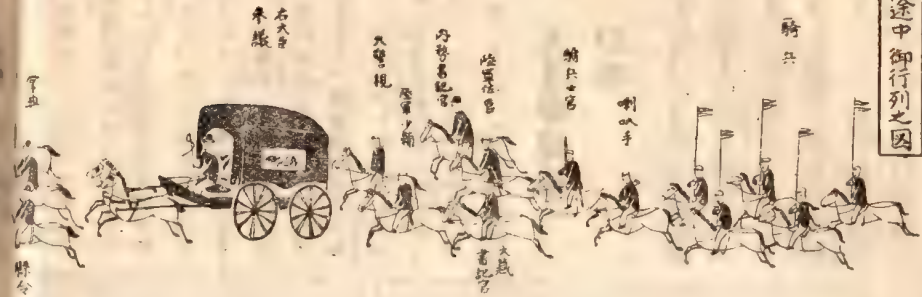 途中御行列之図
騎兵
喇叭手
騎兵士官
陸軍佐官
大蔵
書記官
内務書記官
陸軍少輔
大警視
右大臣
参議
縣令